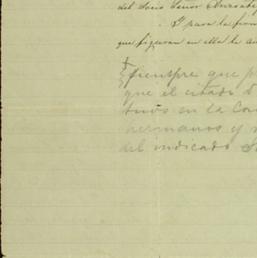 del Socio Señor
. Y para la
que figuran en ella la
Siempre que p
que el citado d
tivos en la Co
hermanos y
del indicado S